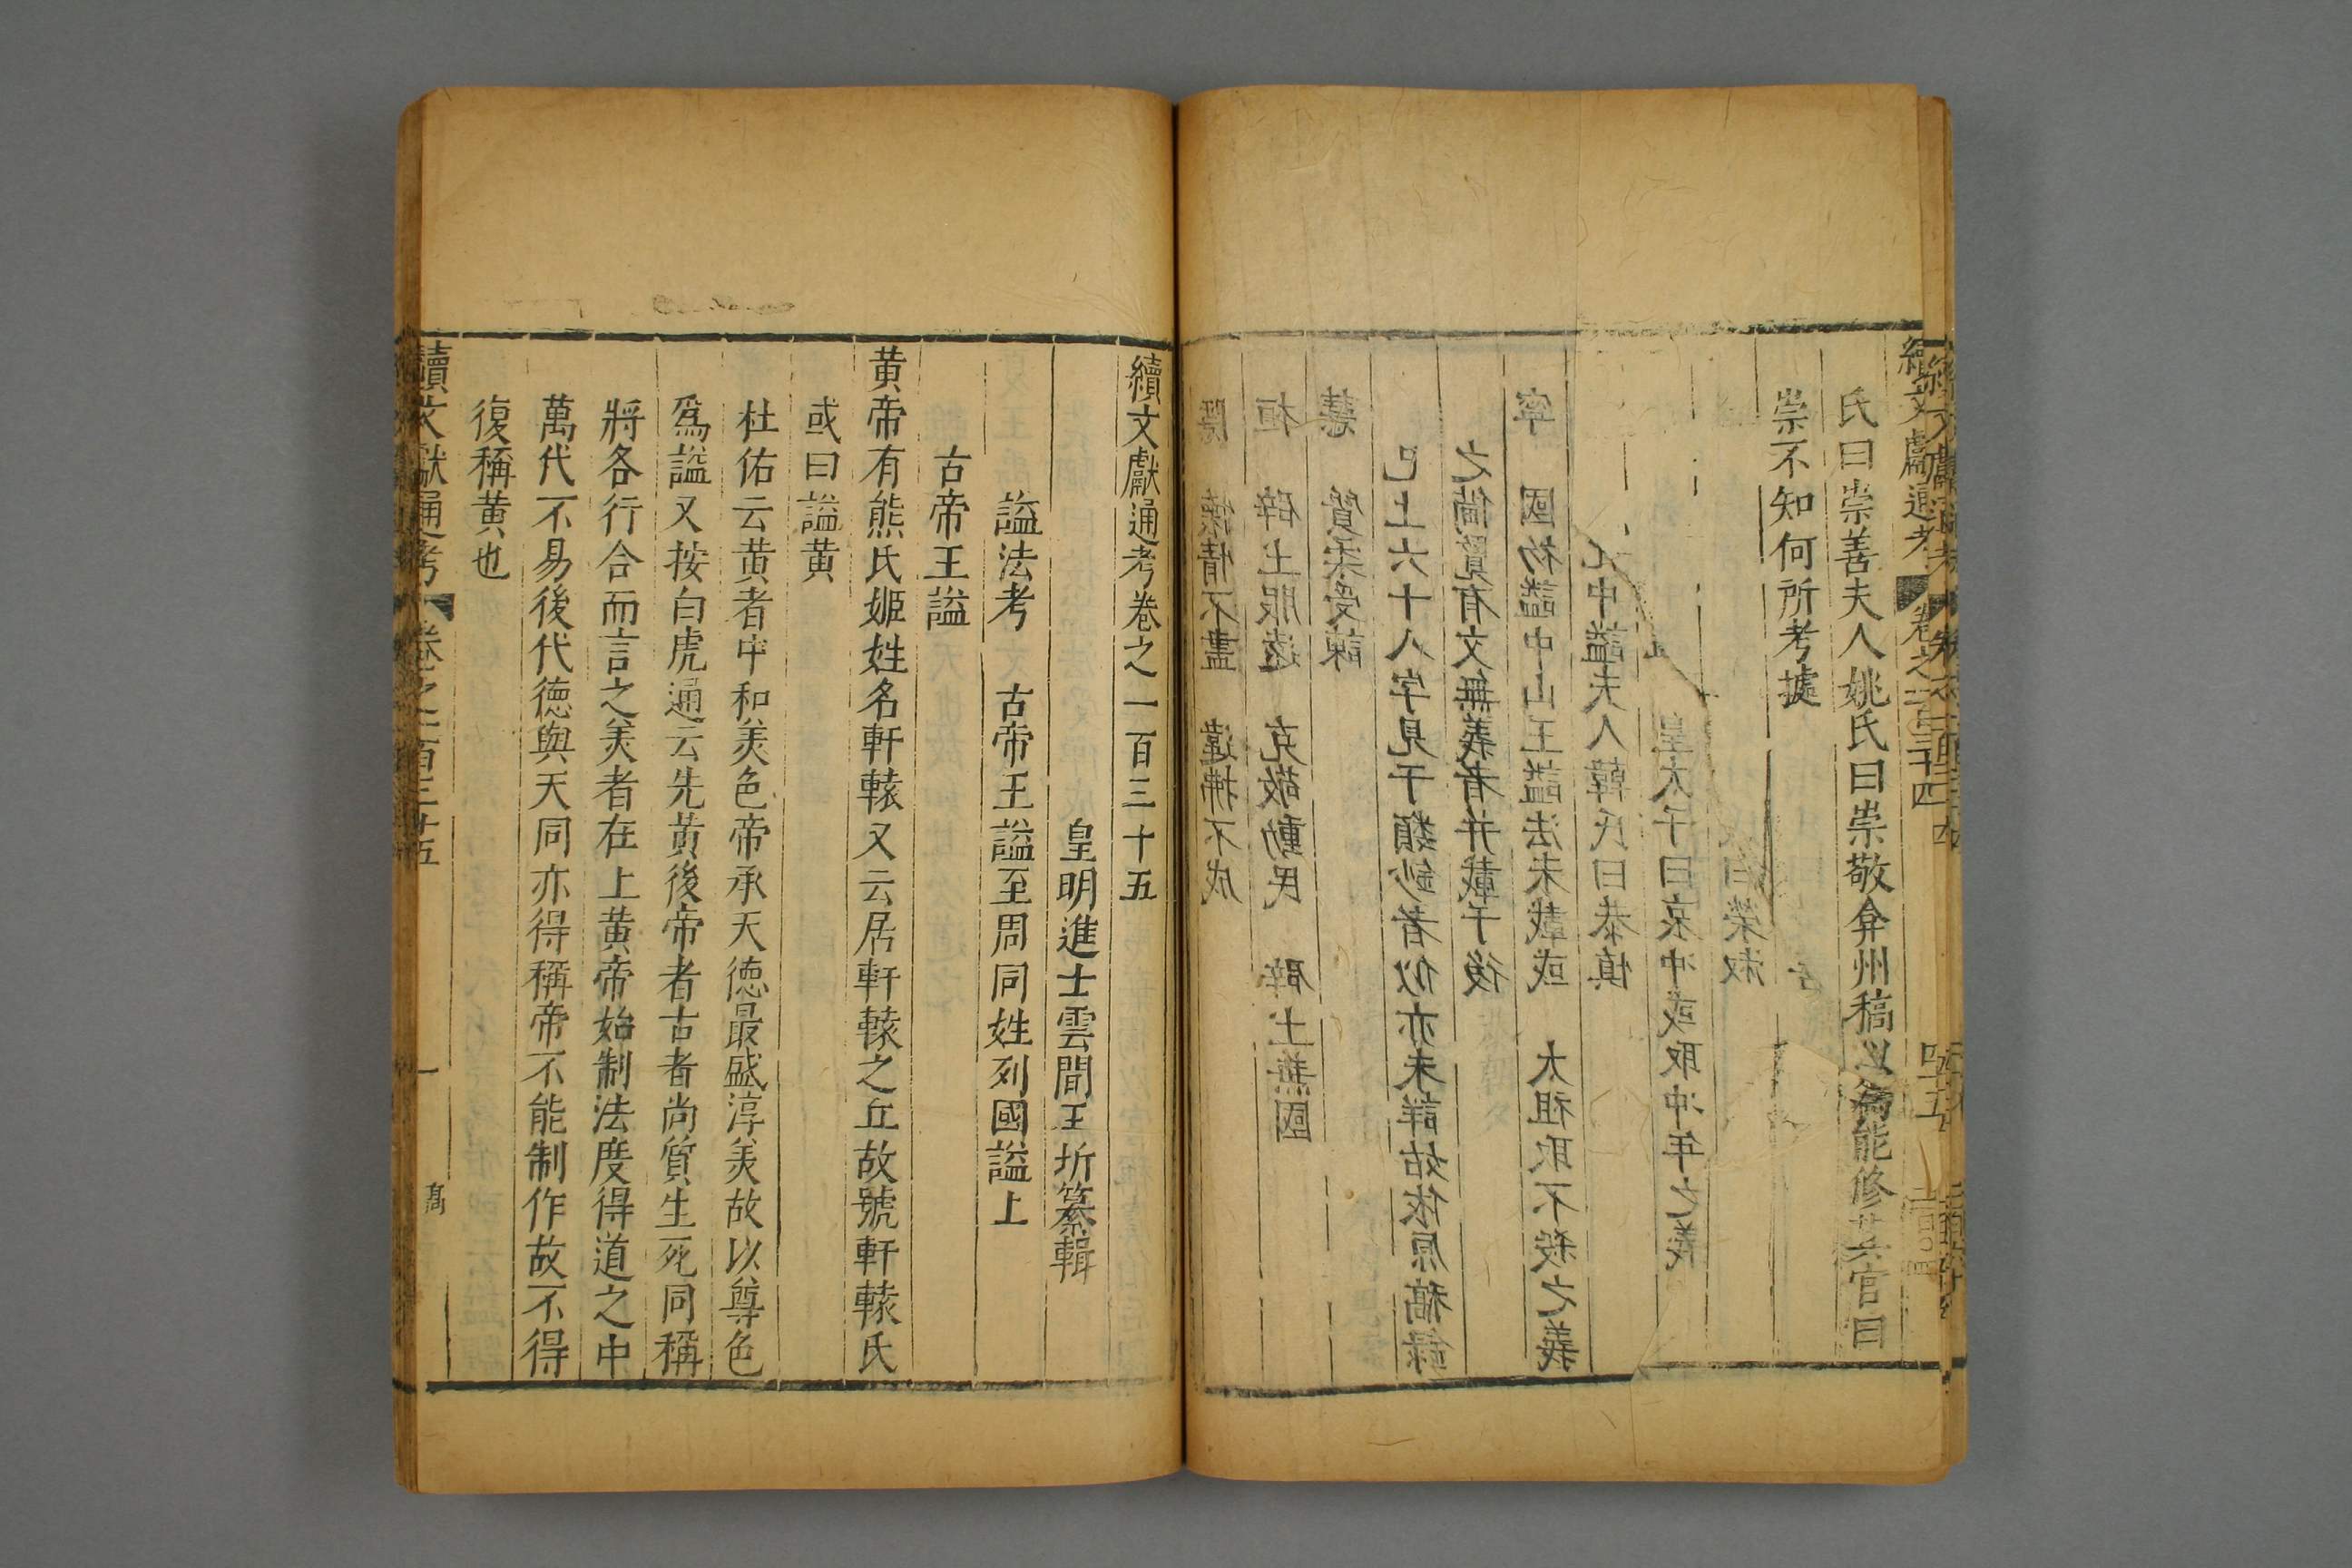 續文獻通考 卷之一百三十四
氏曰崇善夫人姚氏曰崇敬弇州稿以為能修其官曰
崇不知何所考據
隱 懷情不盡 違拂不成
桓 辟土服遠 克敬動民 辟土兼國
慧 質柔受諫
已上六十八字見于類鈔者似亦未詳姑依原稿錄
之備覽有文無義者并載于後
寧 國初謚中山王謚法未載或 太祖取不殺之義
中謚夫人韓氏曰恭慎
皇太子曰哀冲或取冲年之義
曰榮淑
續文獻通考卷之一百三十五
皇明進士雲間王圻纂輯
謚法考 古帝王謚至周同姓列國謚上
古帝王謚
黃帝有熊氏姬姓名軒轅又云居軒轅之丘故號軒轅氏
或曰謚黃
杜佑云黃者中和美色帝承天德最盛淳美故以尊色
爲謚又按白虎通云先黃後帝者古者尚質生死同稱
將各行合而言之美者在上黃帝始制法度得道之中
萬代不易後代德與天同亦得稱帝不能制作故不得
復稱黃也
續文獻通考 卷之一百三十五 一 高